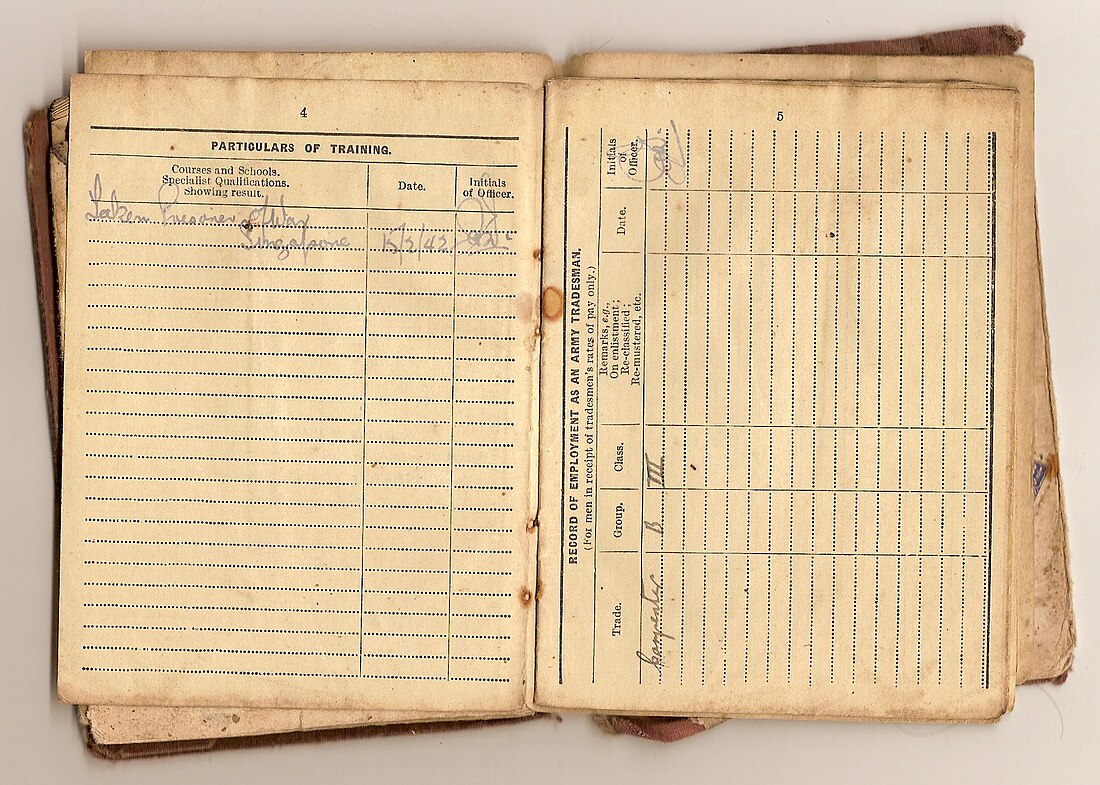 4
PARTICULARS OF TRAINING.
Courses and Schools.
Specialist Qualifications.
Showing result.
Date.
Initials
of Officer.
Taken Prisoner of War
Singapore 15/2/42
5
RECORD OF EMPLOYMENT AS AN ARMY TRADESMAN.
(For men in receipt of tradesmen's rates of pay only.)
Trade.
Group.
Class.
Remarks, e.g.,
On enlistment;
Re-classified;
Re-mustered, etc.
Date.
Initials
of
Officer.
Carpenter B III